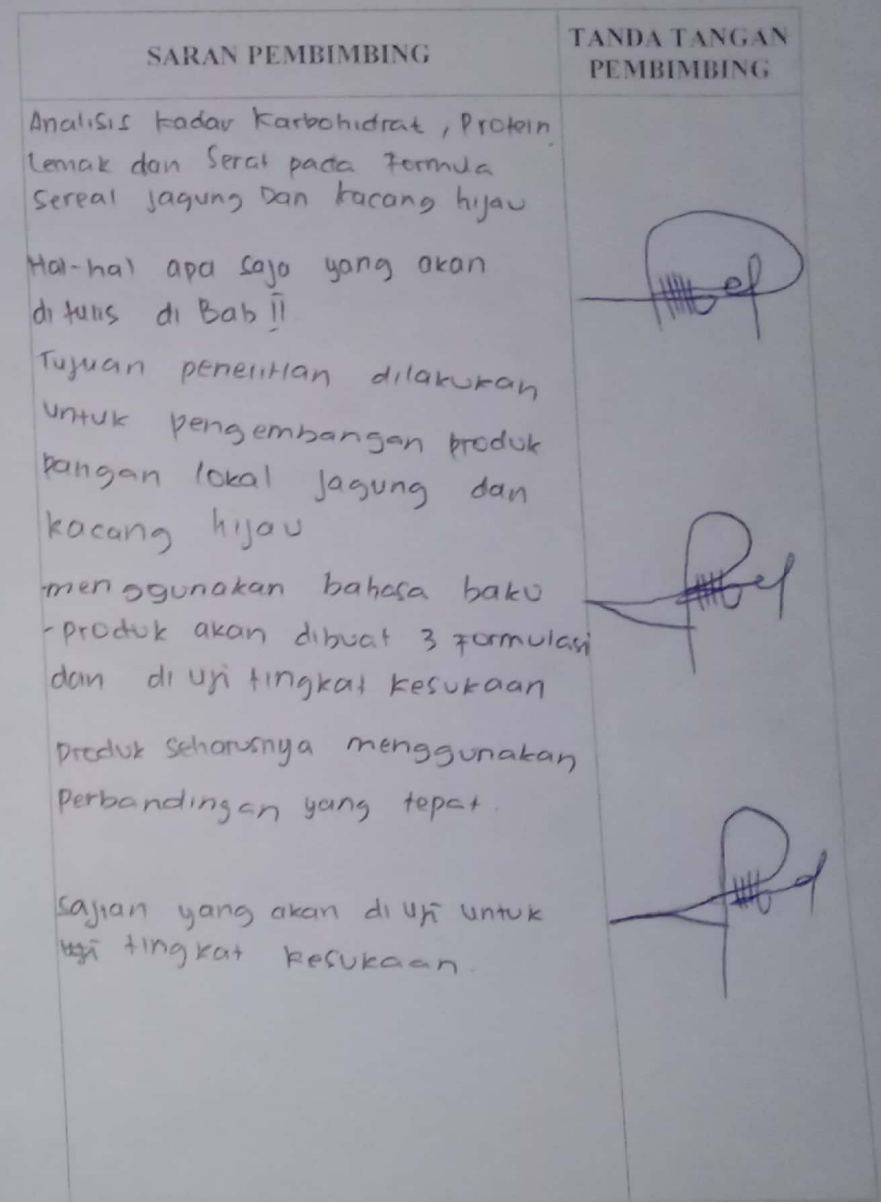 SARAN PEMBIMBING
TANDA TANGAN
PEMBIMBING
Analisis kadar Karbohidrat, Protein
Lemak dan Serat pada Formula
Sereal Jagung Dan kacang hijau
Hal-hal apa saja yang akan
di tulis di Bab II
Tujuan penelitian dilakukan
untuk pengembangan produk
pangan lokal Jagung dan
kacang hijau
menggunakan bahasa baku
-produk akan dibuat 3 Formulasi
dan di uji tingkat kesukaan
Produk seharusnya menggunakan
Perbandingan yang tepat.
Sajian yang akan di uji untuk
tingkat kesukaan.